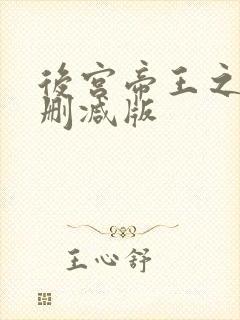 後宫帝王之
删减版
王心舒